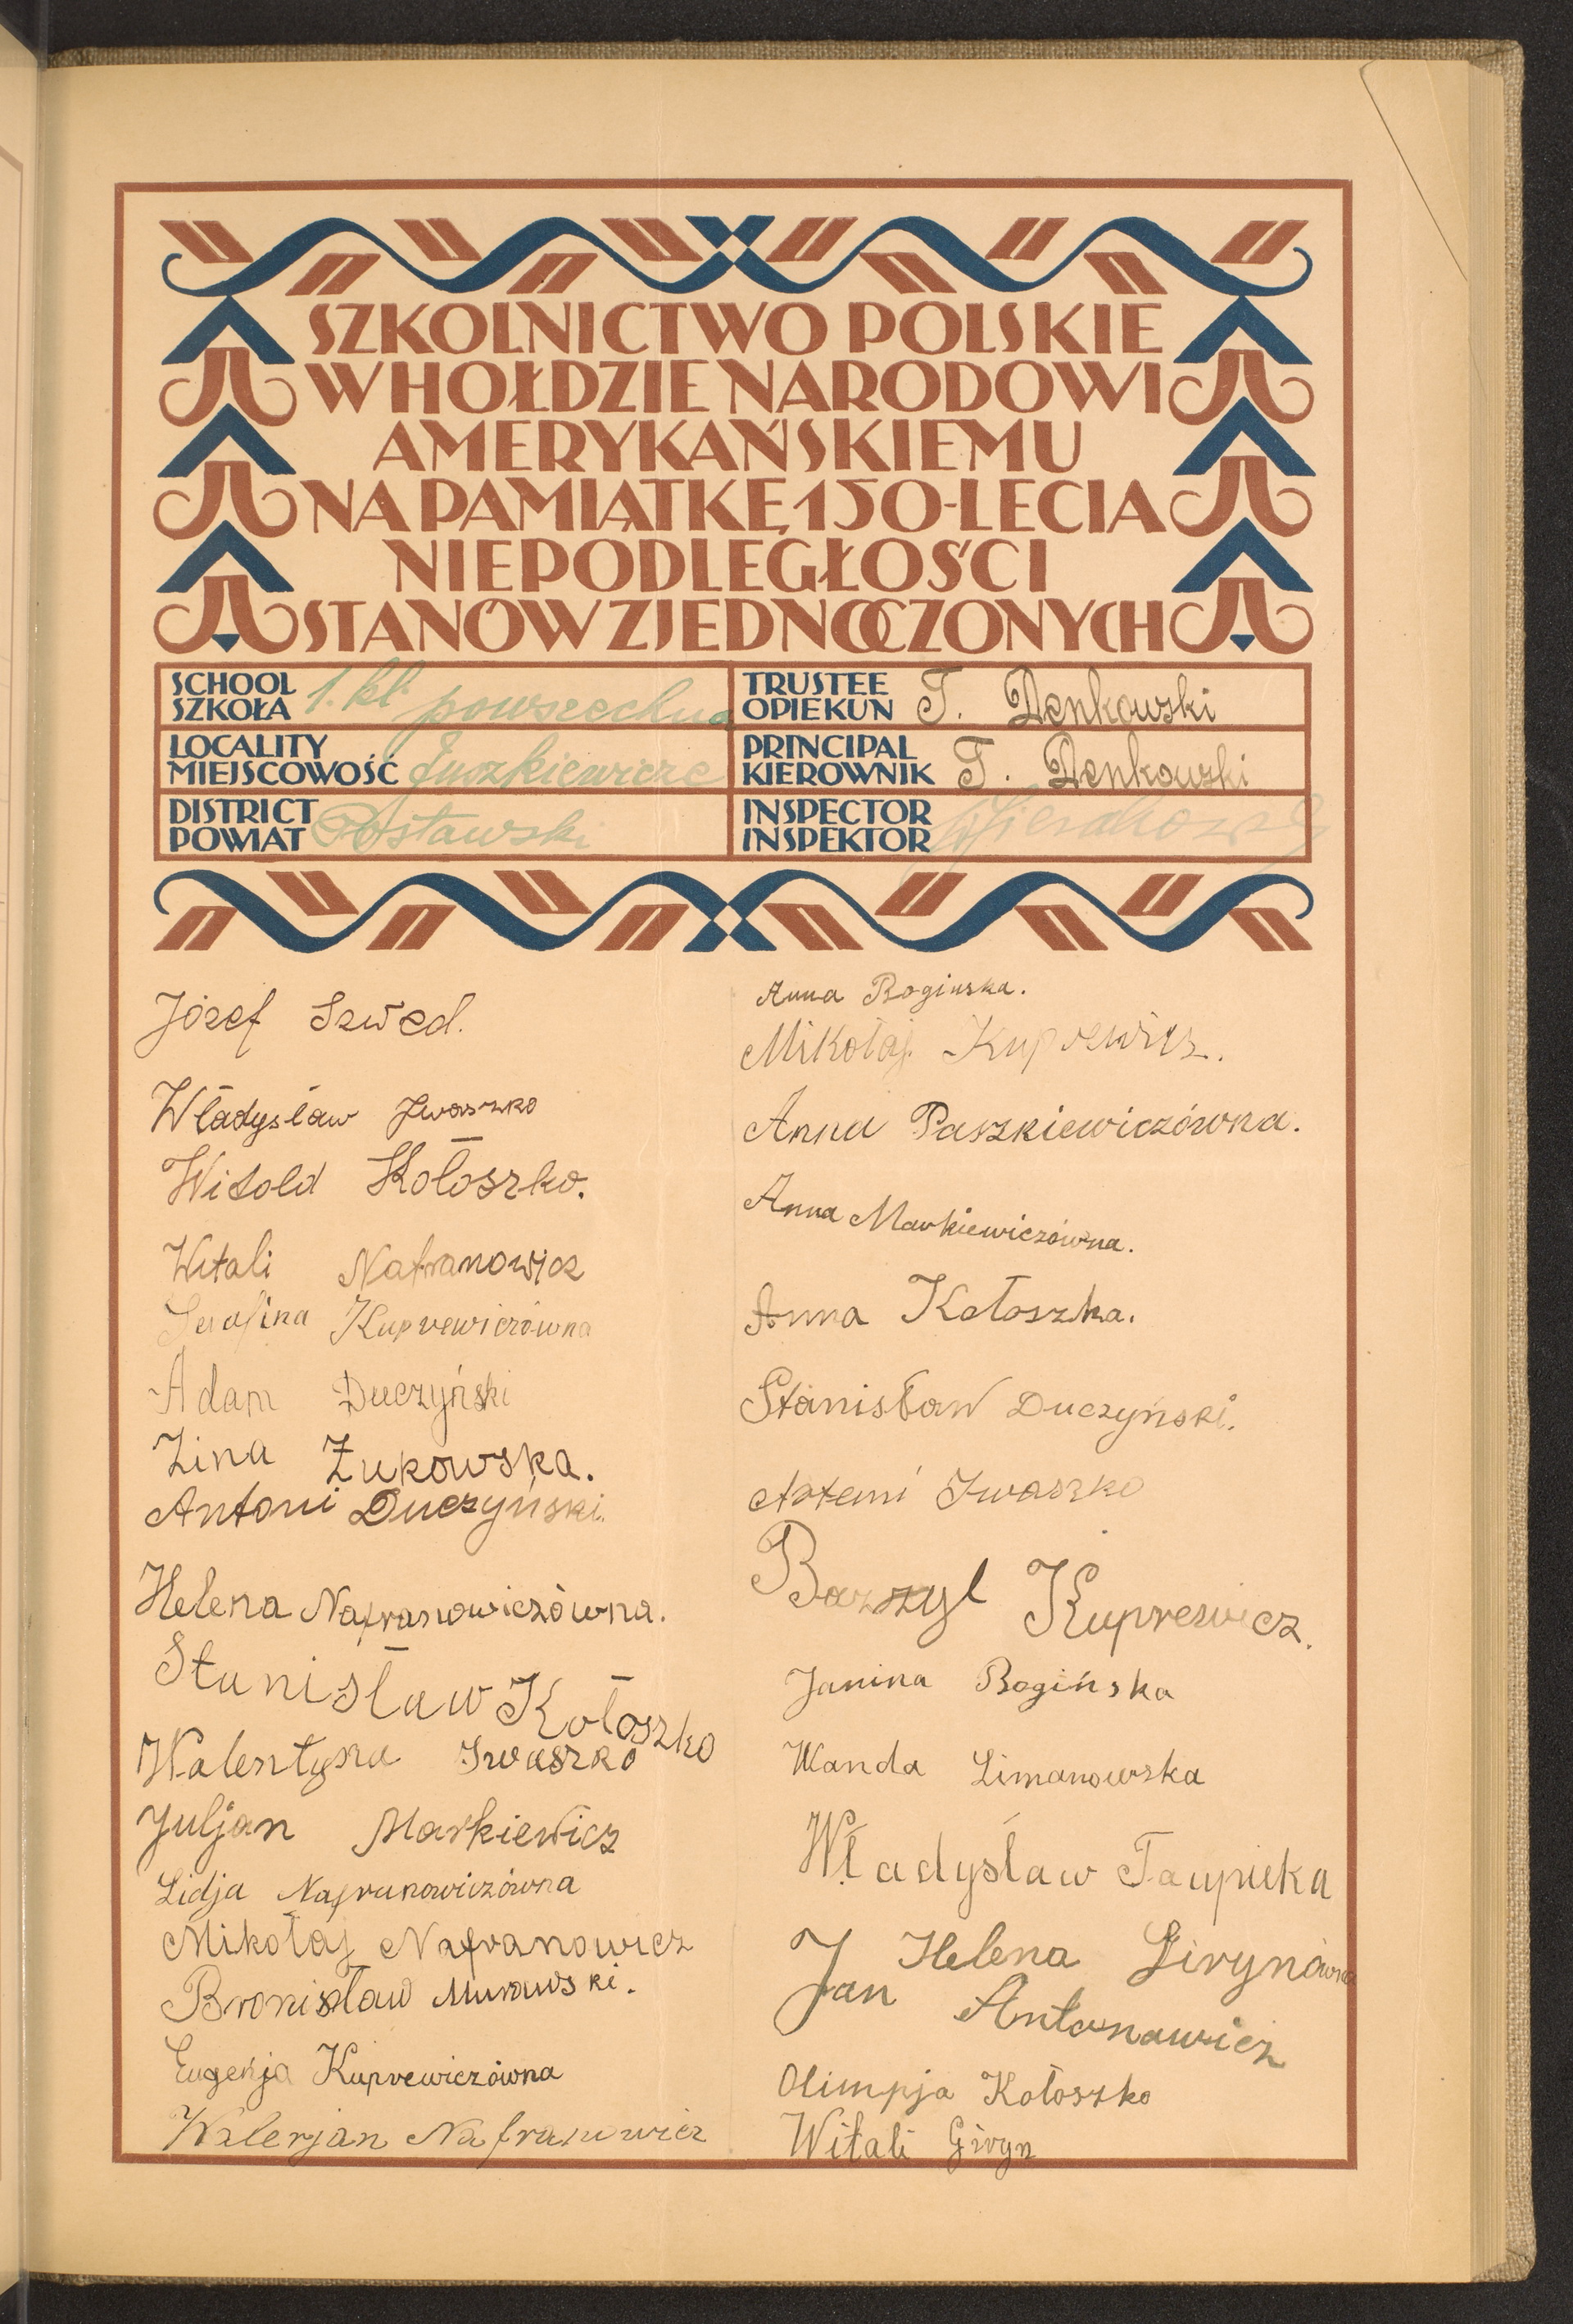 SZKOLNICTWO POLSKIE
W HOŁDZIE NARODOWI
AMERYKAŃSKIEMU
NA PAMIĄTKĘ 150-LECIA
NIEPODLEGŁOŚCI
STANÓW ZJEDNOCZONYCH
SCHOOL
SZKOŁA 1. kl. powszechna
TRUSTEE
OPIEKUN T. Denkowski
LOCALITY
MIEJSCOWOŚĆ Juszkiewicze
PRINCIPAL
KIEROWNIK T. Denkowski
DISTRICT
POWIAT Postawski
INSPECTOR
INSPEKTOR
Józef Szwed.
Władysław Iwaszko
Witold Kołoszko.
Witali Nafranowicz
Serafina Kuprewiczówna
Adam Duczyński
Zina Żukowska.
Antoni Duczyński.
Helena Nafranowiczówna.
Stanisław Kołoszko
Walentyna Iwaszko
Juljan Markiewicz
Lidja Nafranowiczówna
Mikołaj Nafranowicz
Bronisław Murawski.
Eugenja Kuprewiczówna
Walerjan Nafranowicz
Anna Boginska.
Mikołaj Kuprewicz.
Anna Paszkiewiczówna.
Anna Markiewiczówna.
Anna Kołoszka.
Stanisław Duczyński.
Artemi Iwaszko
Bazyl Kuprewicz.
Janina Bogińska
Wanda Limanowska
Władysław
Helena Girynówna
Jan Antonawicz
Olimpja Kołoszko
Witali Giryn